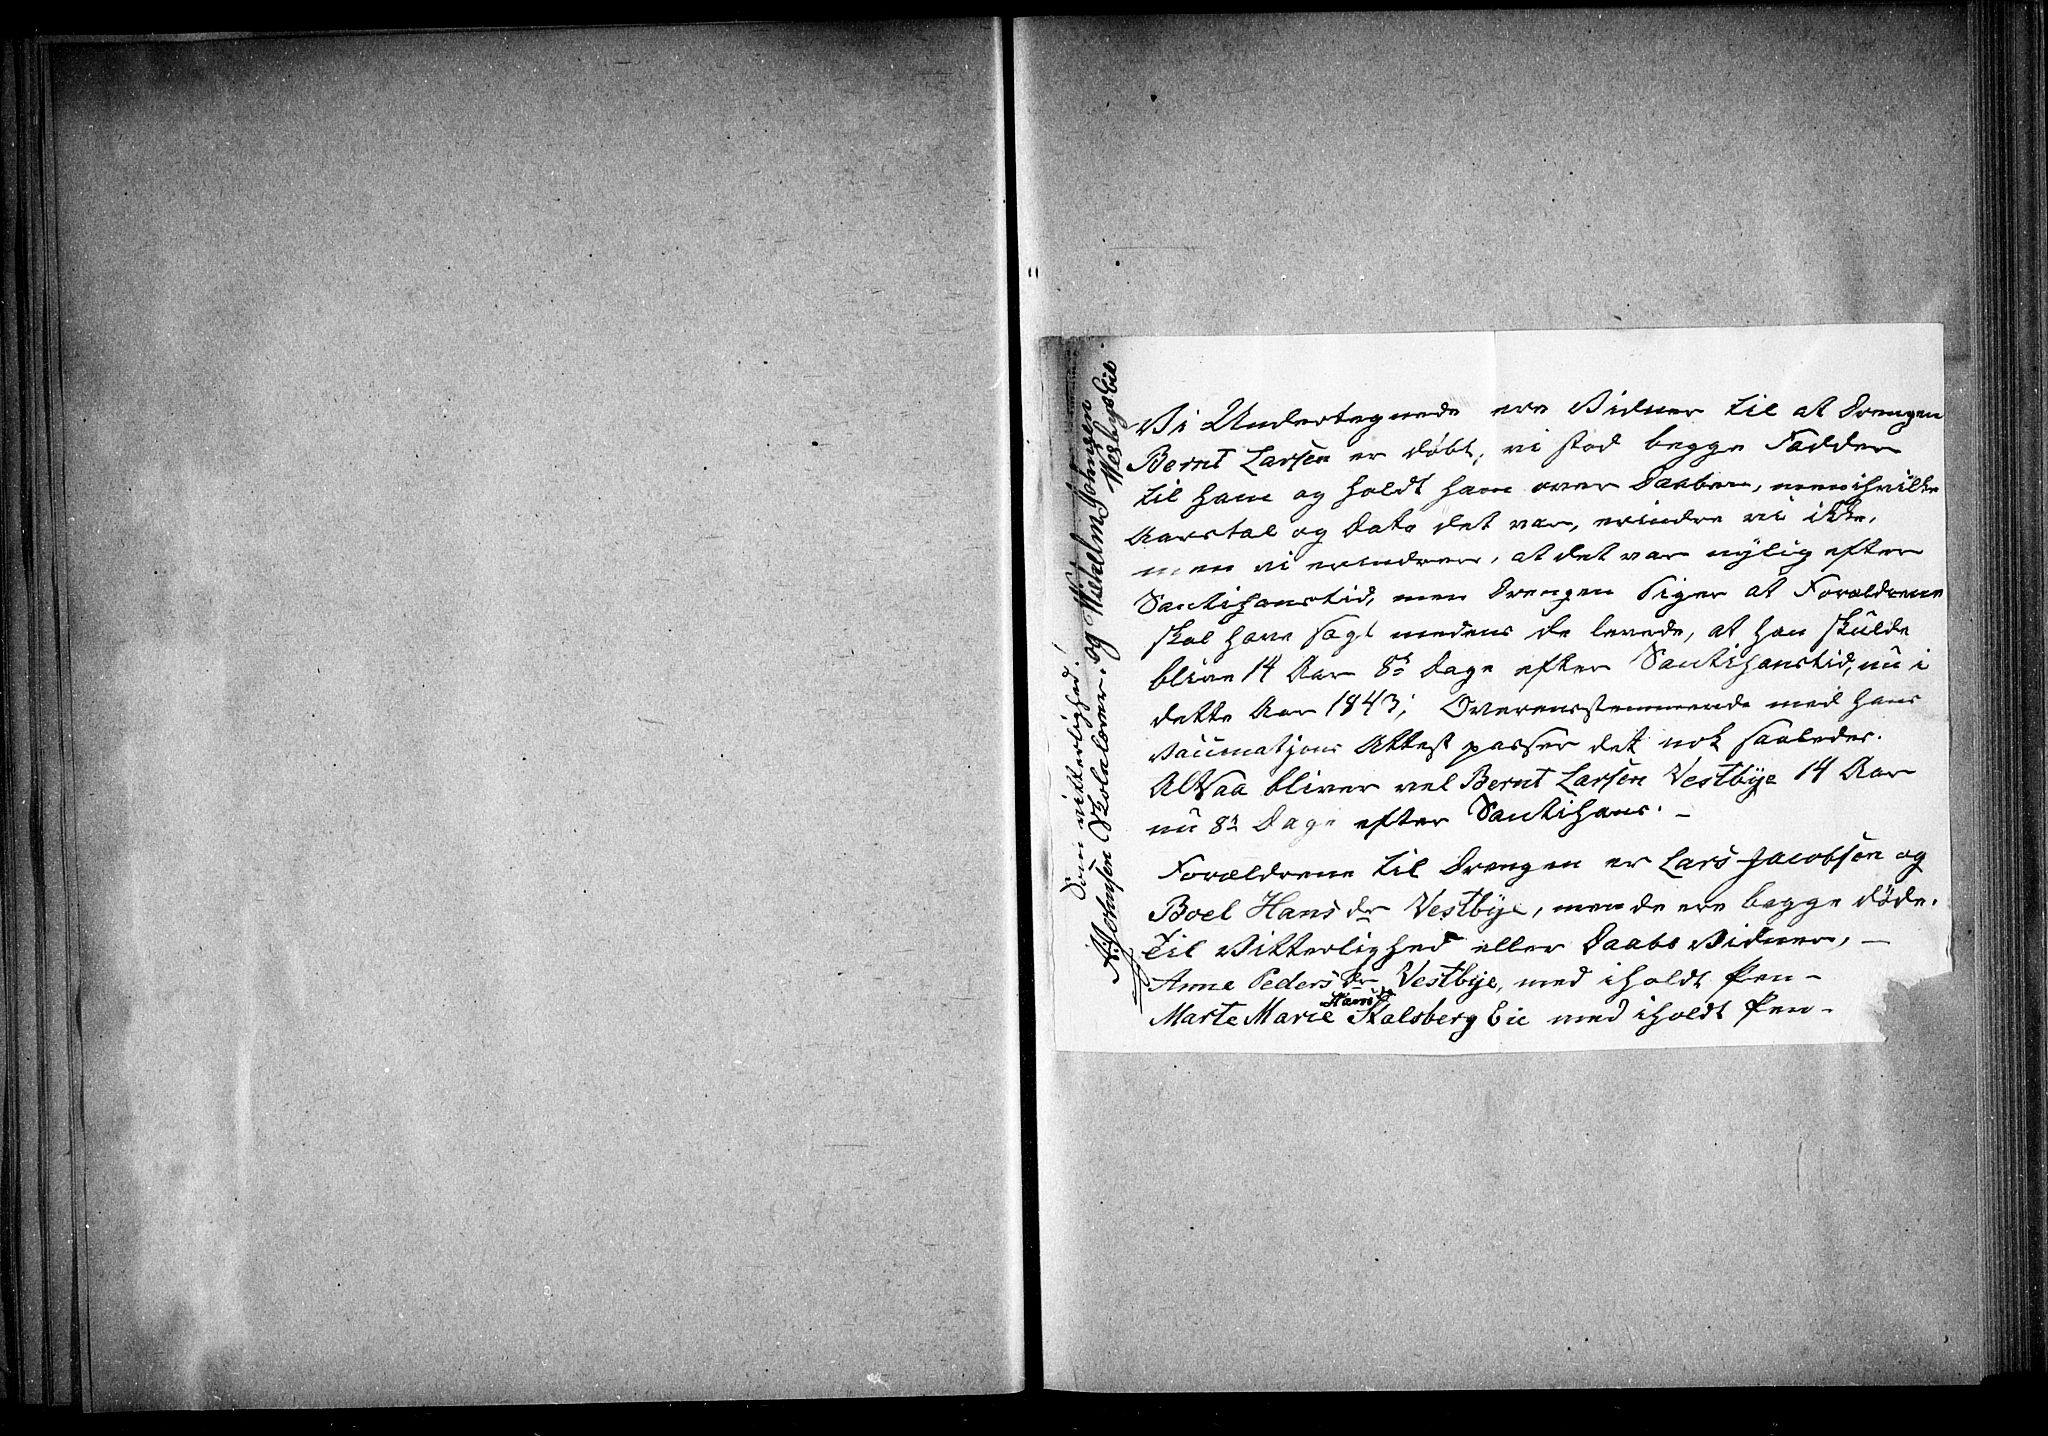 Vi Undertegnede ere Vidner til at Drengen
Bernt Larsen er døbt, vi stod begge Fadder
til ham og holdt ham over Daaben, men ihvilke
Aarstal og Dato det var, erindre vi ikke,
men vi erindrer, at det var nylig efter
Sanctihanstid, men Drengen siger at Forældrene
skal have sagt medens de levede, at han skulde
blive 14 Aar 8te Dage efter Sanctihanstid, nu i
dette Aar 1843; Overensstemmende med hans
Vaccinations Attest passer det nok saaledes.
Altsaa bliver vel Bernt Larsen Vestbye 14 Aar
nu 8te Dage efter Sanctihans. —
Forældrene til Drengen er Lars Jacobsen og
Boel Hansdr Vestbye, men de ere begge døde.
Til Vitterlighed eller Daabs Vidner, —
Anne Pedersdr Vestbye, med iholdt Pen —
Marte Marie Hansdr Stalsberg Eie med iholdt Pen —
Som vitterlighed!
A. Johnsen Skolelærer. og Wilhelm Johnsen
Wesbyeeie